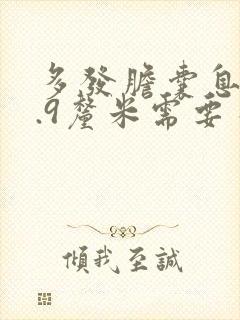 多發膽囊息
.9釐米需要
傾我至誠